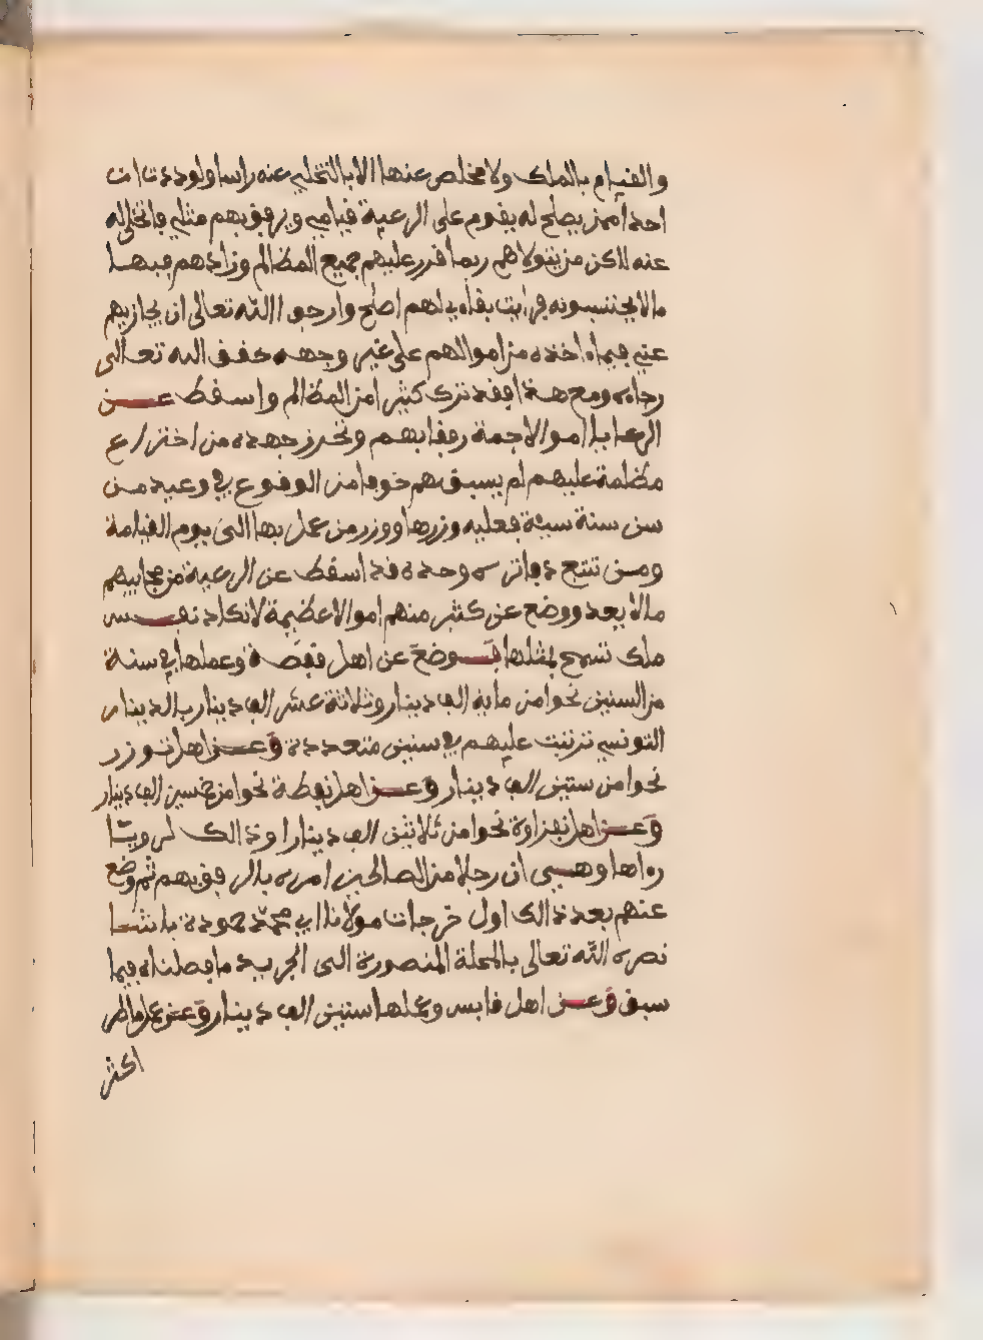 والقيام بالملك ولا مخلص عنها الا بالتخلي عنه راسا ولو وددت ان
احدا ممن يصلح له يقوم على الرعية قيامي ويرفق بهم مثلي فاتخلى له
عنه لاكن من يتولاهم ربما قرر عليهم جميع المظالم وزادهم فيها
ما لا يحتسبونه فرايت بقاءي لهم اصلح وارجوا الله تعالى ان يجازيهم
عني فيما ءاخذه من اموالهم على غير وجهه حقق الله تعالى
رجاه ومع هذا فقد ترك كثيرا من المظالم واسقط عن
الرعايا اموالا جمة رفقا بهم وتحرز جهده من اختراع
مظلمة عليهم لم يسبق هم خوفا من الوقوع في وعيد من
سن سنة سيئة فعليه وزرها ووزر من عمل بها الى يوم القيامة
ومن تتبع دفاتره وحده قد اسقط عن الرعية من مجابيهم
ما لا يعد ووضع عن كثير منهم اموالا عظيمة لا تكاد نفس
ملك تسمح بمثلها فوضع عن اهل قفصة وعملها في سنة
من السنين نحوا من ماية الف دينار وثلاثة عشر الف دينار بالدينار
التونسي ترتبت عليهم في سنين متعددة وعن اهل توزر
نحوا من ستين الف دينار وعن اهل نفطة نحوا من خمسين الف دينار
وعن اهل نفزاوة نحوا من ثلاثين الف دينارا وذالك لرويا
رءاها وهي ان رجلا من الصالحين امره بالرفق بهم ثم وضع
عنهم بعد ذالك اول خرجات مولانا ابي محمد حمودة باشا
نصره الله تعالى بالمحلة المنصورة الى الجريد ما فصلناه فيما
سبق وعن اهل قابس وعملها ستين الف دينار وعن عمل ماطر
اكثر